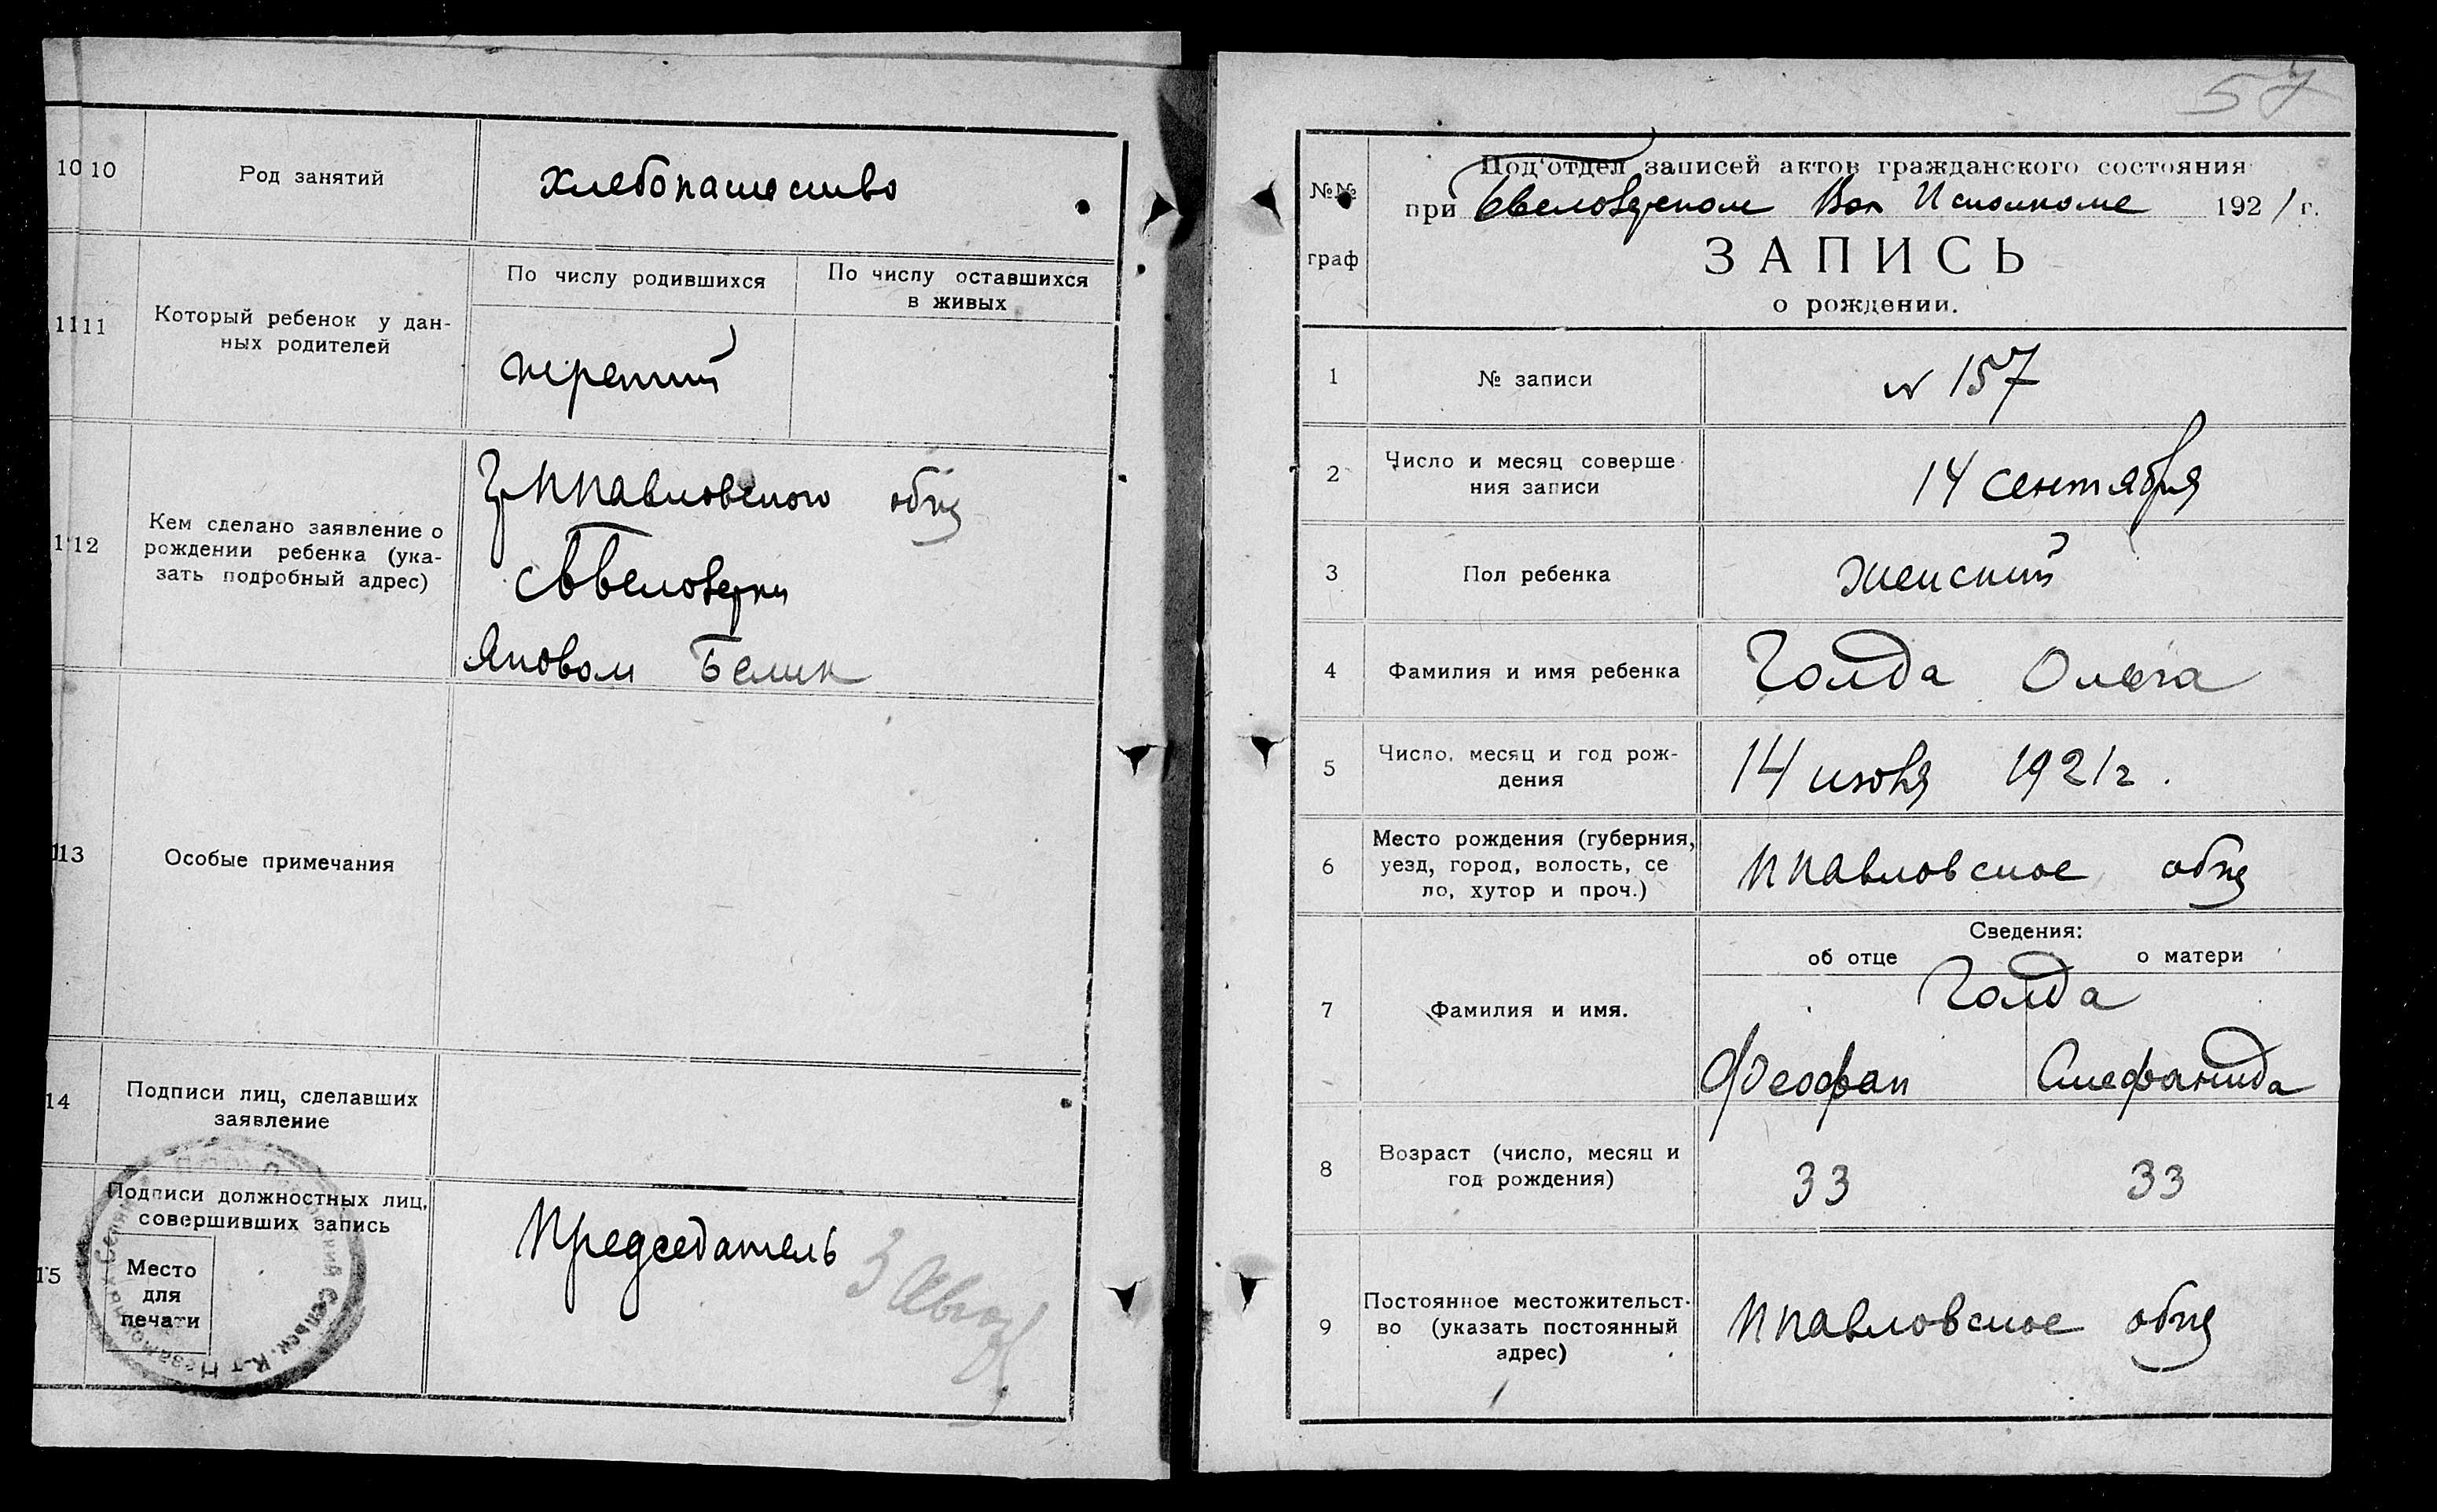 10 10
Род занятий
хлебопашество
11 11
Который ребенок у дан-
ных родителей
По числу родившихся
По числу оставшихся
в живых
третий
1 12
Кем сделано заявление о
рождении ребенка (ука-
зать подробный адрес)
ППавловского общ
Яковом Белик
113
Особые примечания
14
Подписи лиц, сделавших
заявление
15
Подписи должностных лиц,
совершивших запись
Место
для
печати
Сельск. К-т Незамож
Председатель
57
№№
граф
Под'отдел записей актов гражданского состояния
при Вол Исполкоме 1921 г.
ЗАПИСЬ
о рождении.
1
№ записи
N 157
2
Число и месяц соверше
ния записи
14 сентября
3
Пол ребенка
Женский
4
Фамилия и имя ребенка
Голда Ольга
5
Число, месяц и год рож-
дения
14 июня 1921 г.
6
Место рождения (губерния,
уезд, город, волость, се
ло, хутор и проч.)
ППавловское общ
Сведения:
об отце
о матери
7
Фамилия и имя.
Голда
Феофан
Стефанида
8
Возраст (число, месяц и
год рождения)
33
33
9
Постоянное местожительст-
во (указать постоянный
адрес)
ППавловское общ